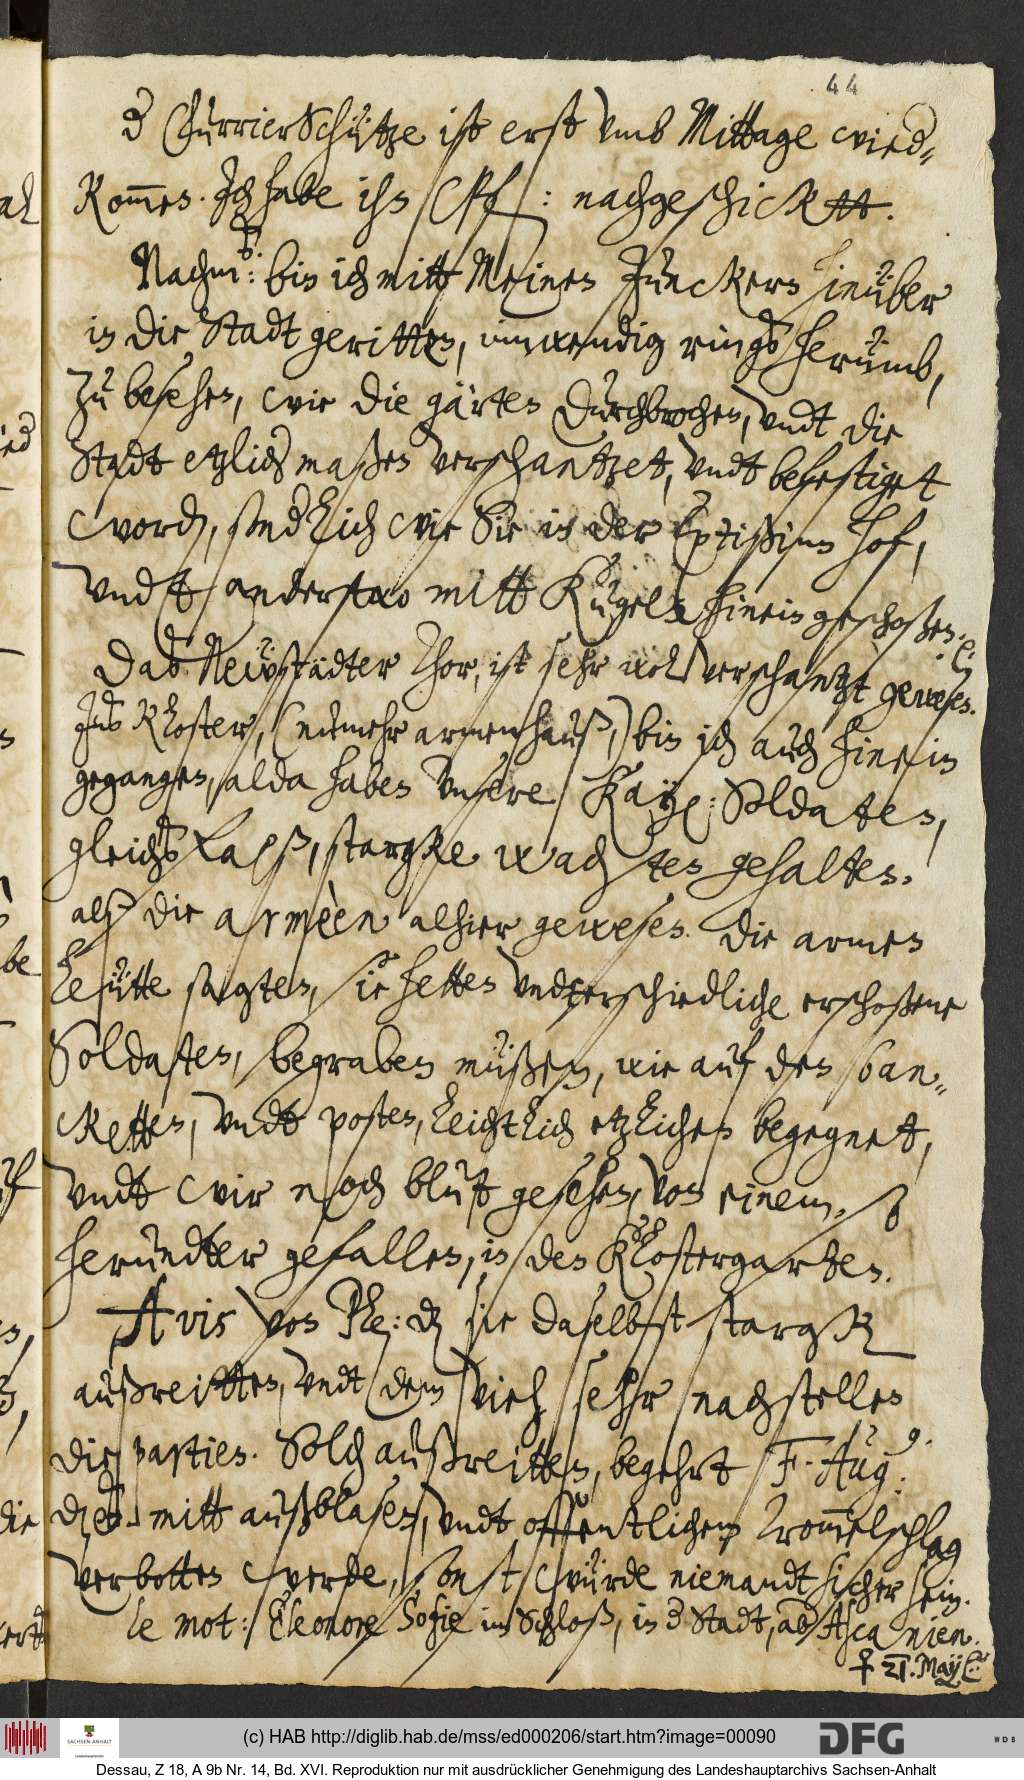 44
d Currier Schütze ist erst vmb Mittage wied„
kommen. Ich habe ihn C Pf: nachgeschicktt.
Nachm: bin ich mitt Meinen Junckern hinüber
in die Stadt geritten, inwendig rings herümb,
zu besehen, wie die gärten durchbrochen, vndt die
Stadt etzlicher maßen verschantzet, vndt befestiget
worden, endlich wie Sie in den hof,
vndt anderstwo mitt Kugeln hinein geschoßen.
Das Neẅstädter Thor, ist sehr wol verschantzt gewesen.
Ins Kloster, (nunmehr armenhauß,) bin ich auch hinein
gegangen, alda haben vnsere Kay: Soldaten,
gleichs starcke wachten gehalten.
alß die armèen alhier gewesen. Die armen
leütte sagten, sie hetten vndterschiedliche erschoßene
Soldaten, begraben müßen, wie auf den ban„
cketten, vndt posten, leichtlich etzlichen begegnet,
vndt wir noch blut gesehen, von einem, so
herundter gefallen, in den Klostergarten.
Avis von Ple: daß sie daselbst starck
außreitten, vndt dem vieh sehr nachstellen
die partien. Solch außreitten, begehrt F. Aug:
daß es mitt außblasen, vndt offentlichem Trommelschlag
verbotten werde, sonst würde niemandt sicher sein.
le mot: Eleonore Sofie im Schloß, in d Stadt, ab Ascanien.
♀ 21. Maÿ
(c) HAB http://diglib.hab.de/mss/ed000206/start.htm?image=00090
SACHSEN-ANHALT
DFG
WDB
Dessau, Z 18, A 9b Nr. 14, Bd. XVI. Reproduktion nur mit ausdrücklicher Genehmigung des Landeshauptarchivs Sachsen-Anhalt